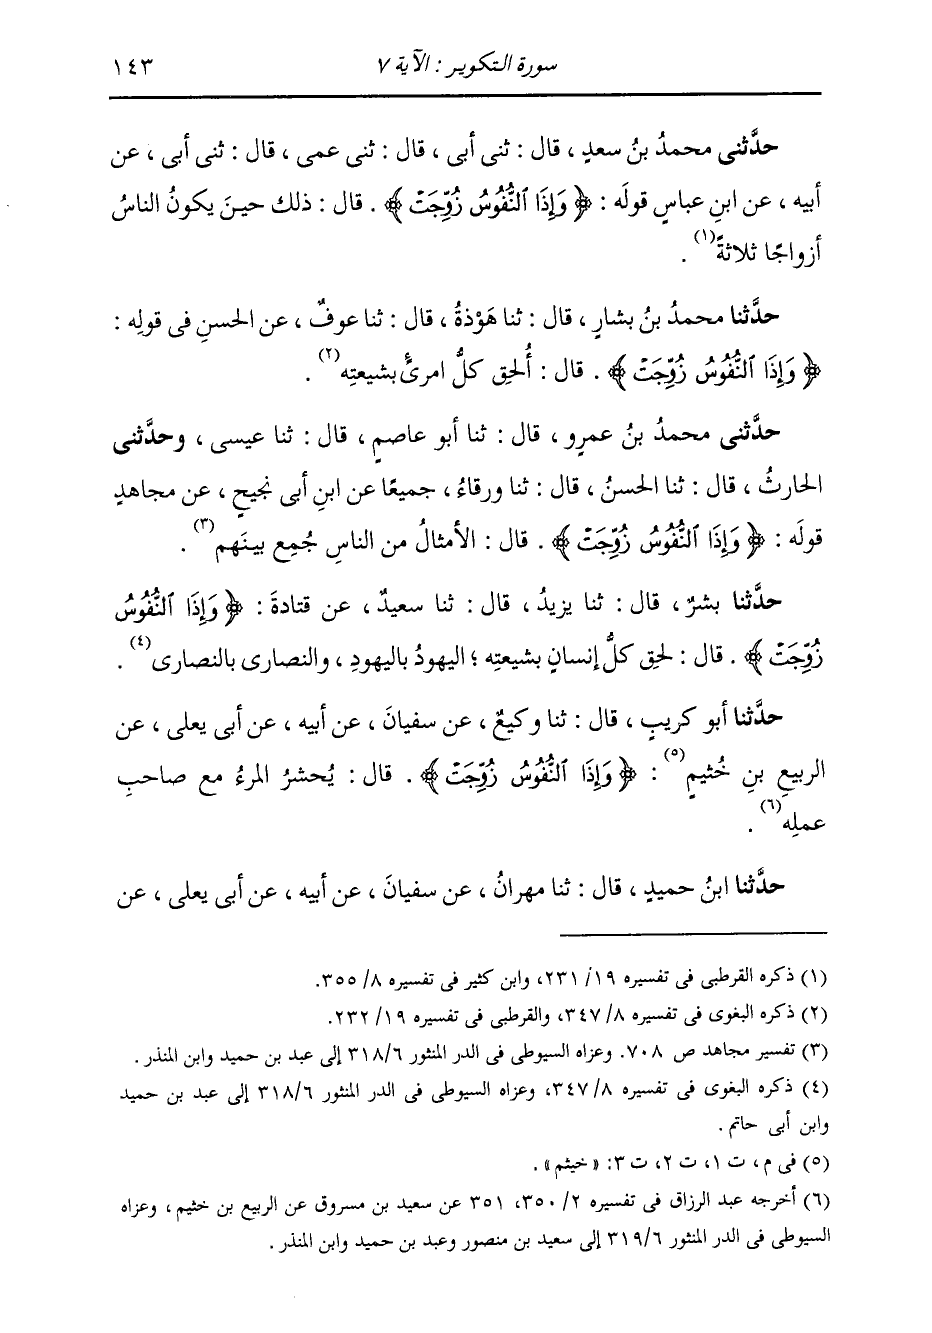 سورة التكوير : الآية ٧ ١٤٣
حدَّثنى محمدُ بنُ سعدٍ ، قال : ثنى أبى ، قال : ثنى عمى ، قال : ثنى أبى ، عن
أبيه ، عن ابنِ عباسٍ قولَه : ﴿ وَإِذَا ٱلنُّفُوسُ زُوِّجَتْ ﴾ . قال : ذلك حينَ يكونُ الناسُ
أزواجًا ثلاثةً(١) .
حدَّثنا محمدُ بنُ بشارٍ ، قال : ثنا هَوْذةُ ، قال : ثنا عوفٌ ، عن الحسنِ فى قولِه :
﴿ وَإِذَا ٱلنُّفُوسُ زُوِّجَتْ ﴾ . قال : أُلحِق كلُّ امرئٍ بشيعتِه(٢) .
حدَّثنى محمدُ بنُ عمرٍو ، قال : ثنا أبو عاصمٍ ، قال : ثنا عيسى ، وحدَّثنى
الحارثُ ، قال : ثنا الحسنُ ، قال : ثنا ورقاءُ ، جميعًا عن ابنِ أبى نجيحٍ ، عن مجاهدٍ
قولَه : ﴿ وَإِذَا ٱلنُّفُوسُ زُوِّجَتْ ﴾ . قال : الأمثالُ من الناسِ جُمِع بينَهم(٣) .
حدَّثنا بشرٌ ، قال : ثنا يزيدُ ، قال : ثنا سعيدٌ ، عن قتادةَ : ﴿ وَإِذَا ٱلنُّفُوسُ
زُوِّجَتْ ﴾ . قال : لحِق كلُّ إنسانٍ بشيعتِه ؛ اليهودُ باليهودِ ، والنصارى بالنصارى(٤) .
حدَّثنا أبو كريبٍ ، قال : ثنا وكيعٌ ، عن سفيانَ ، عن أبيه ، عن أبى يعلى ، عن
الربيعِ بنِ خُثيمٍ(٥) : ﴿ وَإِذَا ٱلنُّفُوسُ زُوِّجَتْ ﴾ . قال : يُحشرُ المرءُ مع صاحبِ
عملِه(٦) .
حدَّثنا ابنُ حميدٍ ، قال : ثنا مهرانُ ، عن سفيانَ ، عن أبيه ، عن أبى يعلى ، عن
(١) ذكره القرطبى فى تفسيره ١٩/ ٢٣١، وابن كثير فى تفسيره ٨/ ٣٥٥.
(٢) ذكره البغوى فى تفسيره ٨/ ٣٤٧، والقرطبى فى تفسيره ١٩/ ٢٣٢.
(٣) تفسير مجاهد ص ٧٠٨. وعزاه السيوطى فى الدر المنثور ٣١٨/٦ إلى عبد بن حميد وابن المنذر .
(٤) ذكره البغوى فى تفسيره ٨/ ٣٤٧، وعزاه السيوطى فى الدر المنثور ٣١٨/٦ إلى عبد بن حميد
وابن أبى حاتم .
(٥) فى م ، ت ١، ت ٢، ت ٣: «خيثم» .
(٦) أخرجه عبد الرزاق فى تفسيره ٢/ ٣٥٠، ٣٥١ عن سعيد بن مسروق عن الربيع بن خثيم ، وعزاه
السيوطى فى الدر المنثور ٣١٩/٦ إلى سعيد بن منصور وعبد بن حميد وابن المنذر .